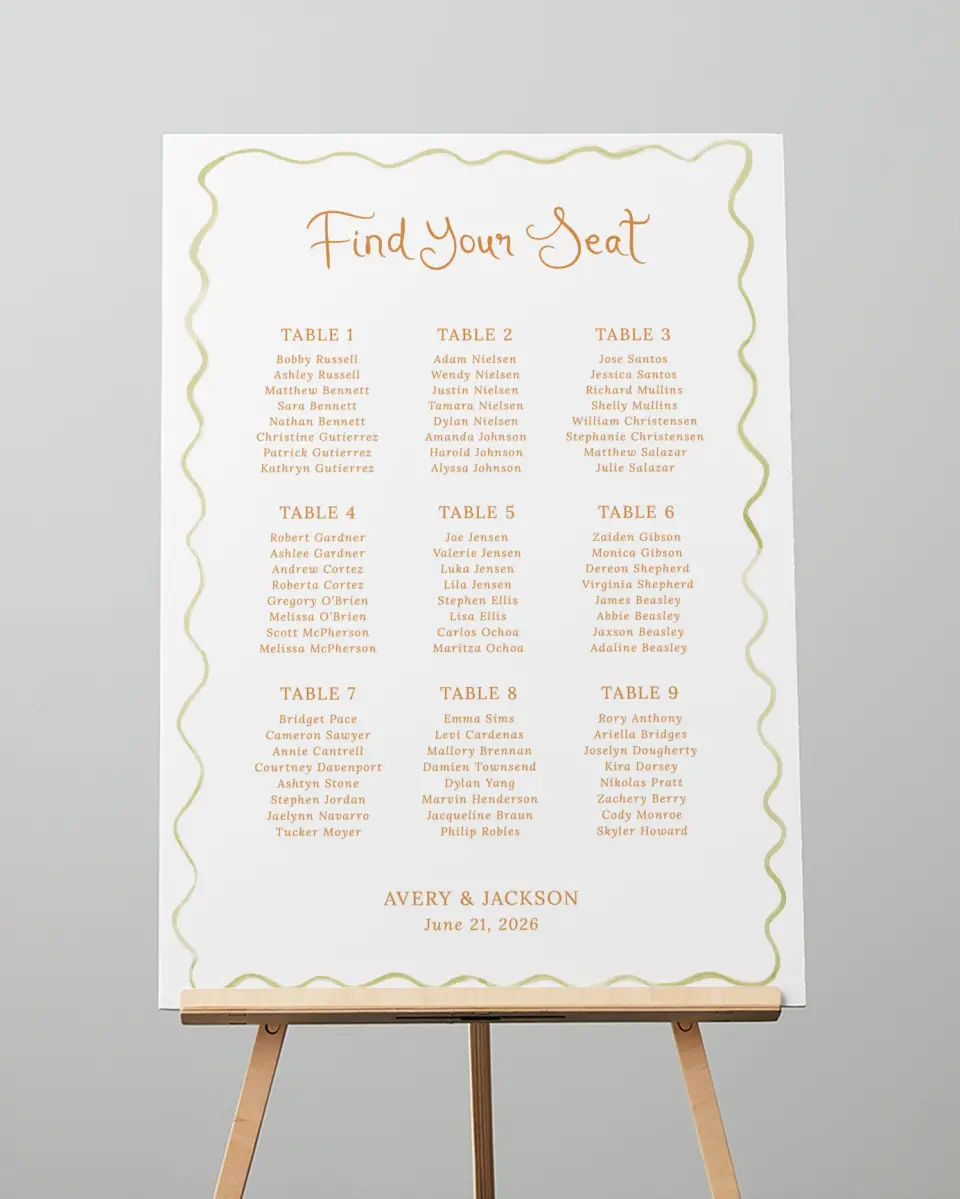 Find Your Seat
TABLE 1
Bobby Russell
Ashley Russell
Matthew Bennett
Sara Bennett
Nathan Bennett
Christine Gutierrez
Patrick Gutierrez
Kathryn Gutierrez
TABLE 2
Adam Nielsen
Wendy Nielsen
Justin Nielsen
Tamara Nielsen
Dylan Nielsen
Amanda Johnson
Harold Johnson
Alyssa Johnson
TABLE 3
Jose Santos
Jessica Santos
Richard Mullins
Shelly Mullins
William Christensen
Stephanie Christensen
Matthew Salazar
Julie Salazar
TABLE 4
Robert Gardner
Ashlee Gardner
Andrew Cortez
Roberta Cortez
Gregory O'Brien
Melissa O'Brien
Scott McPherson
Melissa McPherson
TABLE 5
Joe Jensen
Valerie Jensen
Luka Jensen
Lila Jensen
Stephen Ellis
Lisa Ellis
Carlos Ochoa
Maritza Ochoa
TABLE 6
Zaiden Gibson
Monica Gibson
Dereon Shepherd
Virginia Shepherd
James Beasley
Abbie Beasley
Jaxson Beasley
Adaline Beasley
TABLE 7
Bridget Pace
Cameron Sawyer
Annie Cantrell
Courtney Davenport
Ashtyn Stone
Stephen Jordan
Jaelynn Navarro
Tucker Moyer
TABLE 8
Emma Sims
Levi Cardenas
Mallory Brennan
Damien Townsend
Dylan Yang
Marvin Henderson
Jacqueline Braun
Philip Robles
TABLE 9
Rory Anthony
Ariella Bridges
Joselyn Dougherty
Kira Dorsey
Nikolas Pratt
Zachery Berry
Cody Monroe
Skyler Howard
AVERY & JACKSON
June 21, 2026